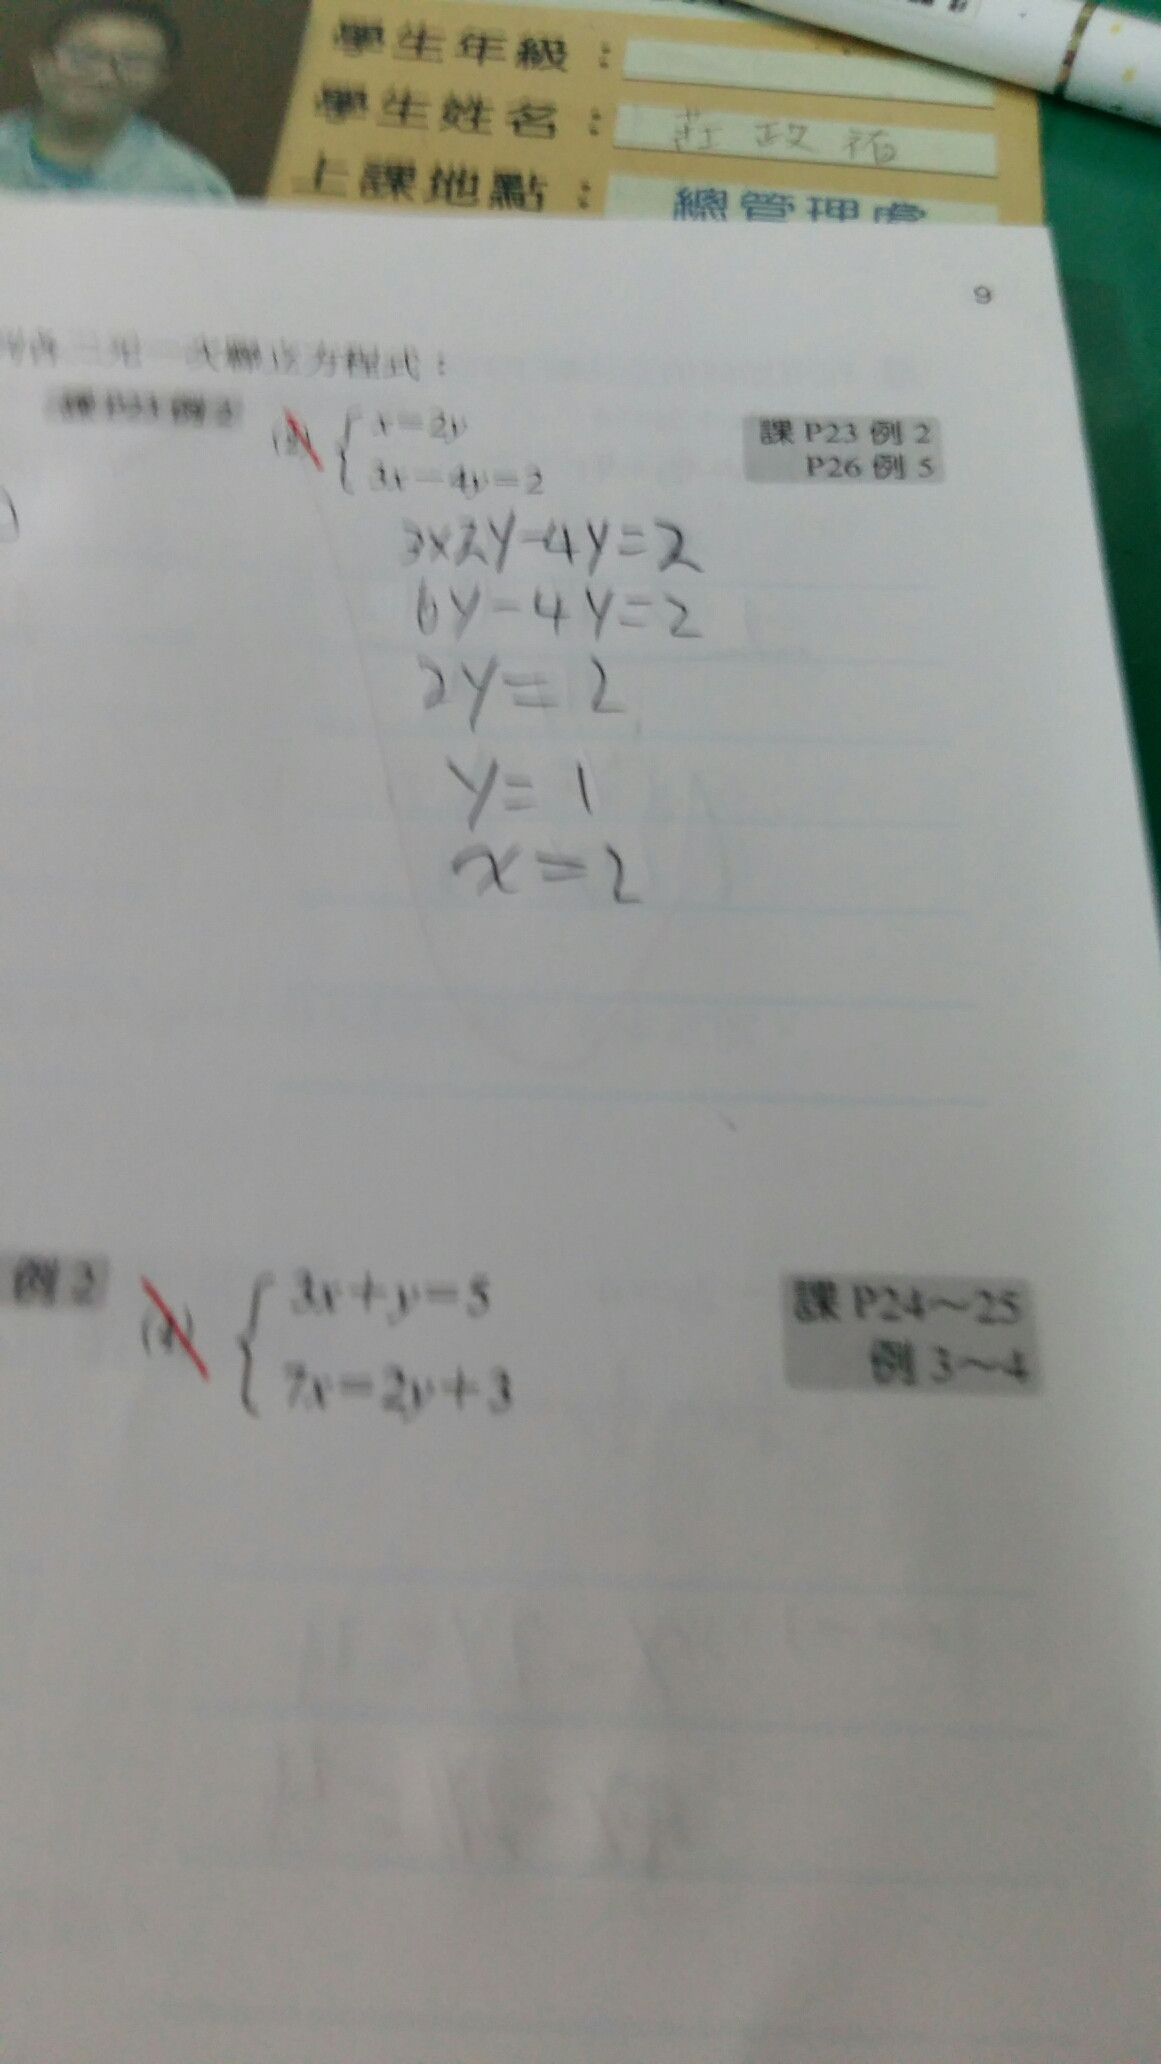 學生年級：
學生姓名：莊政祐
上課地點：總管理處
9
一次聯立方程式：
課 P23 例 2
(2) { x=2y
3x-4y=2
課 P23 例 2
P26 例 5
3×2y-4y=2
6y-4y=2
2y=2
y=1
x=2
例 2
(4) { 3x+y=5
7x=2y+3
課 P24～25
例 3～4